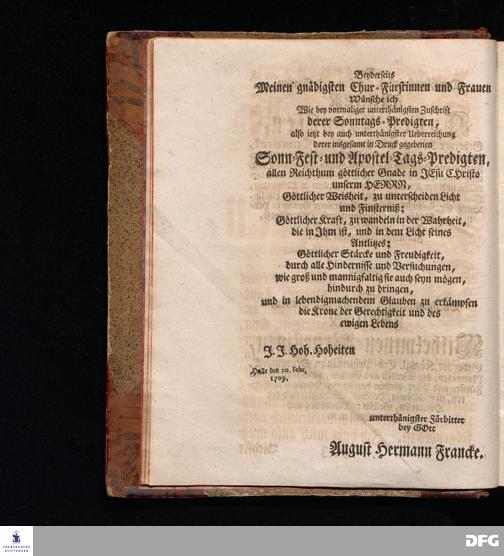 Beyderseits
Meinen gnädigsten Chur-Fürstinnen und Frauen
Wünsche ich
Wie bey vormaliger unterthänigsten Zuschrift
derer Sonntags-Predigten,
also jetzt bey auch unterthänigster Ueberreichung
derer insgesamt in Druck gegebenen
Sonn-Fest- und Apostel-Tags-Predigten,
allen Reichthum göttlicher Gnade in JEsu CHristo
unserm HERRN,
Göttlicher Weisheit, zu unterscheiden Licht
und Finsterniß;
Göttlicher Kraft, zu wandeln in der Wahrheit,
die in Ihm ist, und in dem Licht seines
Antlitzes;
Göttlicher Stärcke und Freudigkeit,
durch alle Hindernisse und Versuchungen,
wie groß und mannigfaltig sie auch seyn mögen,
hindurch zu dringen,
und in lebendigmachendem Glauben zu erkämpfen
die Krone der Gerechtigkeit und des
ewigen Lebens
J. J. Hoh. Hoheiten
Halle den 20. Febr.
1709.
unterthänigster Fürbitter
bey GOtt
August Hermann Francke.
FRANCKESCHE
STIFTUNGEN
DFG